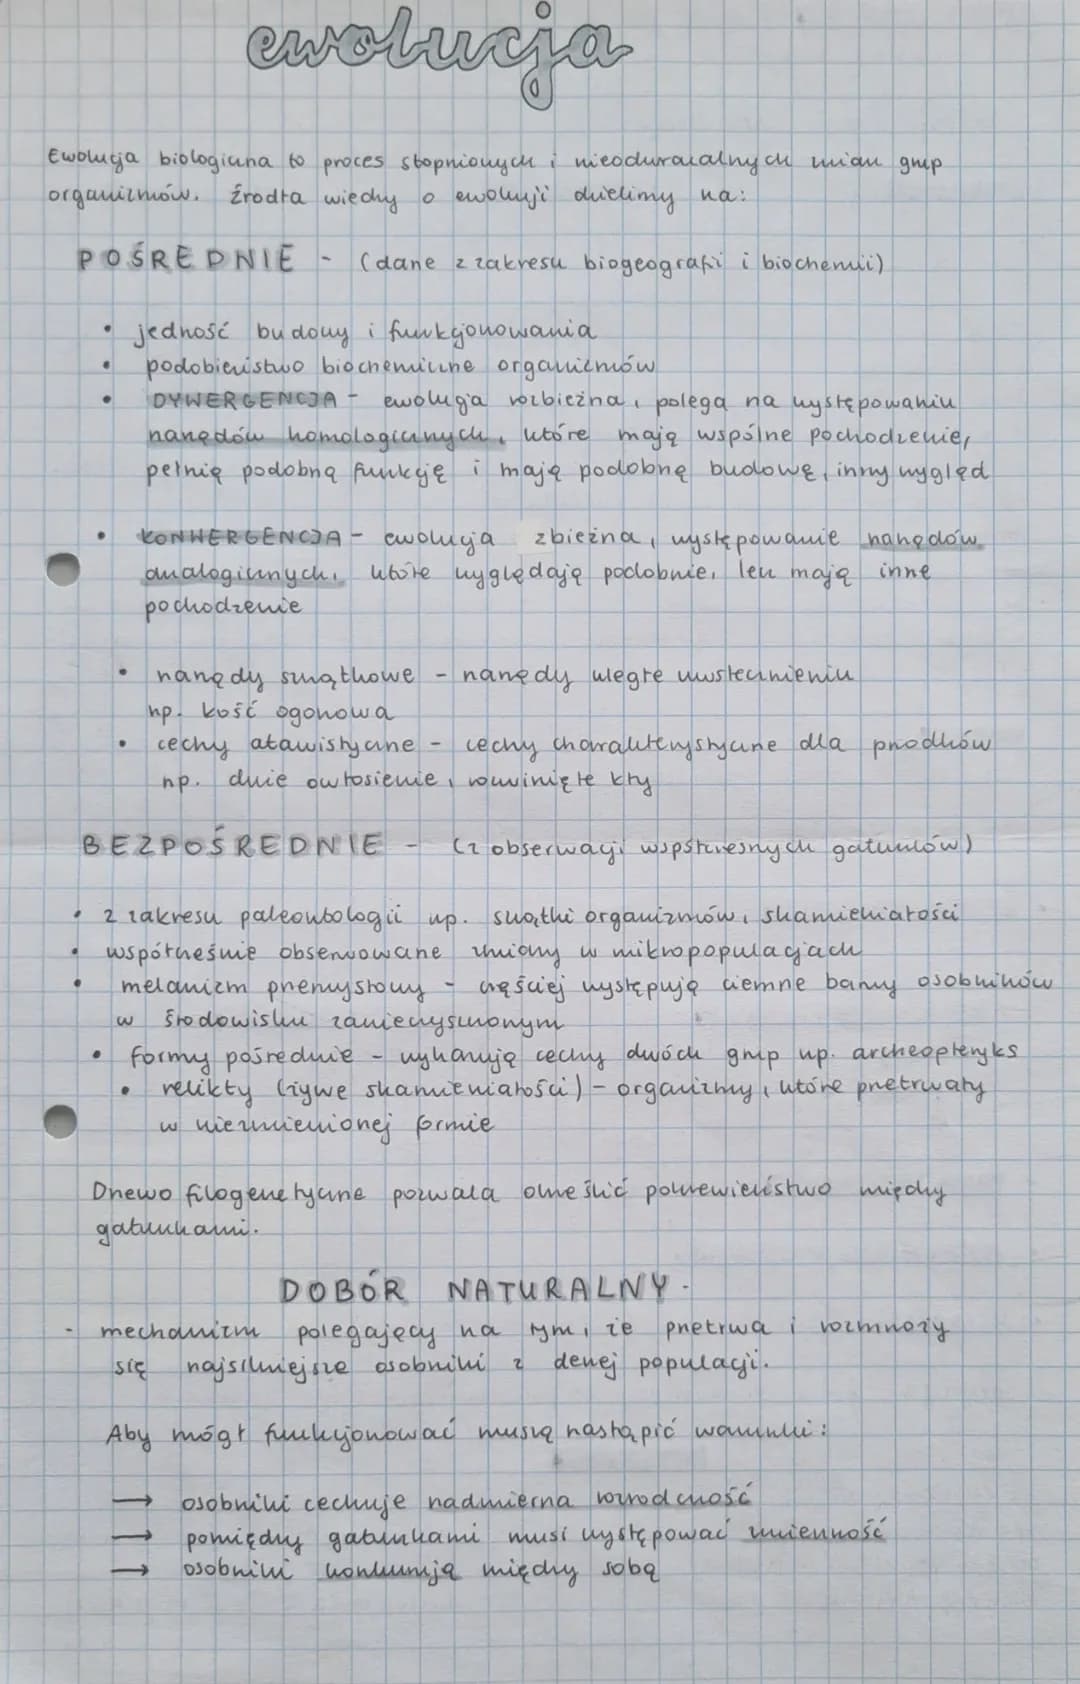 ewolucja
Ewolucja biologiczna to proces stopniowych i nieodwracalnych zmian grup
organizmów. Źródła wiedzy o ewolucji dzielimy na:
POŚREDNIE - (dane z zakresu biogeografii i biochemii)
• jedność budowy i funkcjonowania
• podobieństwo biochemiczne organizmów
• DYWERGENCJA - ewolucja rozbieżna, polega na występowaniu
narządów homologicznych, które mają wspólne pochodzenie,
pełnią podobną funkcję i mają podobną budowę, inny wygląd
• KONWERGENCJA - ewolucja zbieżna, występowanie narządów
analogicznych, które wyglądają podobnie, lecz mają inne
pochodzenie
• narządy szczątkowe - narządy uległe uwstecznieniu
np. kość ogonowa
• cechy atawistyczne - cechy charakterystyczne dla przodków
np. duże owłosienie, rozwinięte kły
BEZPOŚREDNIE - (z obserwacji współczesnych gatunków)
• z zakresu paleontologii np. szczątki organizmów, skamieniałości
• współcześnie obserwowane zmiany w mikropopulacjach
• melanizm przemysłowy - częściej występują ciemne barwy osobników
w środowisku zanieczyszczonym
• formy pośrednie - wykazują cechy dwóch grup np. archeopteryks
• relikty (żywe skamieniałości) - organizmy, które przetrwały
w niezmienionej formie
Drzewo filogenetyczne pozwala określić pokrewieństwo między
gatunkami.
DOBÓR NATURALNY -
- mechanizm polegający na tym, że przetrwa i rozmnoży
się najsilniejsze osobniki z danej populacji.
Aby mógł funkcjonować muszą nastąpić warunki:
→ osobniki cechuje nadmierna rozrodczość
→ pomiędzy gatunkami musi występować zmienność
→ osobniki konkurują między sobą